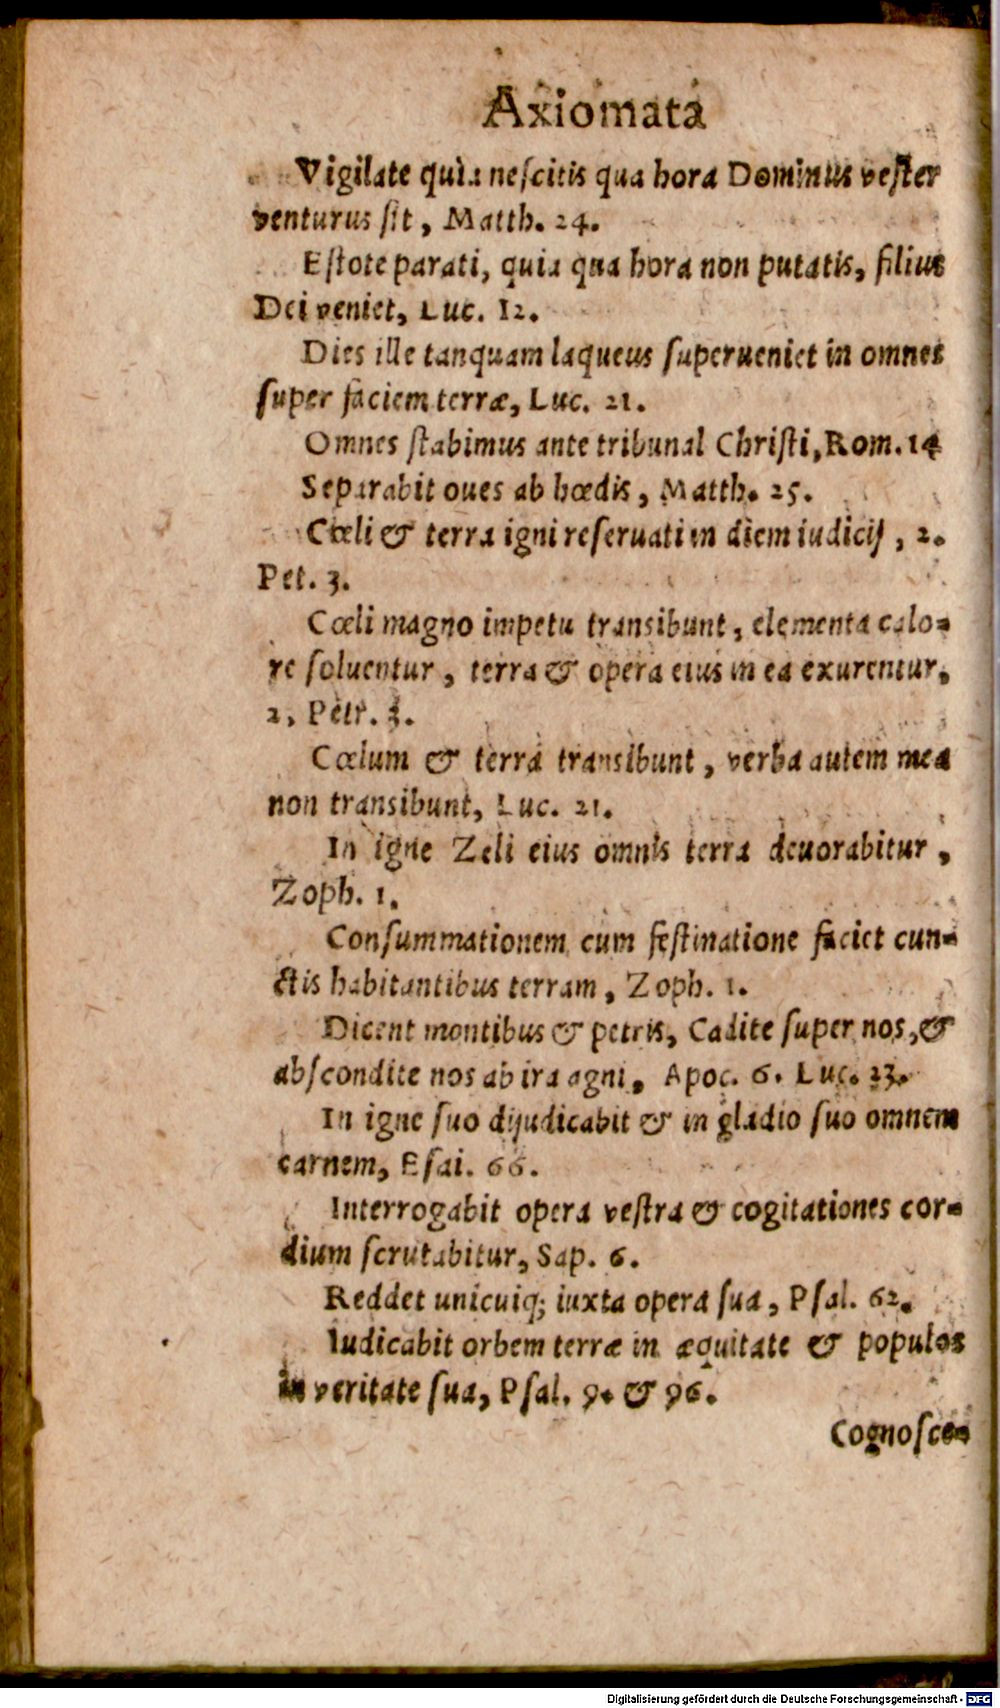 Axiomata
Vigilate quia neſcitis qua hora Dominus veſter
venturus ſit, Matth. 24.
Eſtote parati, quia qua hora non putatis, filius
Dei veniet, Luc. 12.
Dies ille tanquam laqueus ſuperueniet in omnes
ſuper faciem terræ, Luc. 21.
Omnes ſtabimus ante tribunal Chriſti, Rom. 14
Separabit oues ab hœdis, Matth. 25.
Cœli & terra igni reſeruati in diem iudicij, 2.
Pet. 3.
Cœli magno impetu transibunt, elementa calo-
re ſoluentur, terra & opera eius in ea exurentur,
2. Petr. 3.
Cœlum & terra transibunt, verba autem mea
non transibunt, Luc. 21.
In igne Zeli eius omnis terra deuorabitur,
Zoph. 1.
Conſummationem cum feſtinatione faciet cun-
ctis habitantibus terram, Zoph. 1.
Dicent montibus & petris, Cadite ſuper nos, &
abſcondite nos ab ira agni, Apoc. 6. Luc. 23.
In igne ſuo dijudicabit & in gladio ſuo omnem
carnem, Eſai. 66.
Interrogabit opera veſtra & cogitationes cor-
dium ſcrutabitur, Sap. 6.
Reddet unicuiq; iuxta opera ſua, Pſal. 62.
Iudicabit orbem terræ in æquitate & populos
in veritate ſua, Pſal. 9. & 96.
Cognoſce-
Digitalisierung gefördert durch die Deutsche Forschungsgemeinschaft - DFG